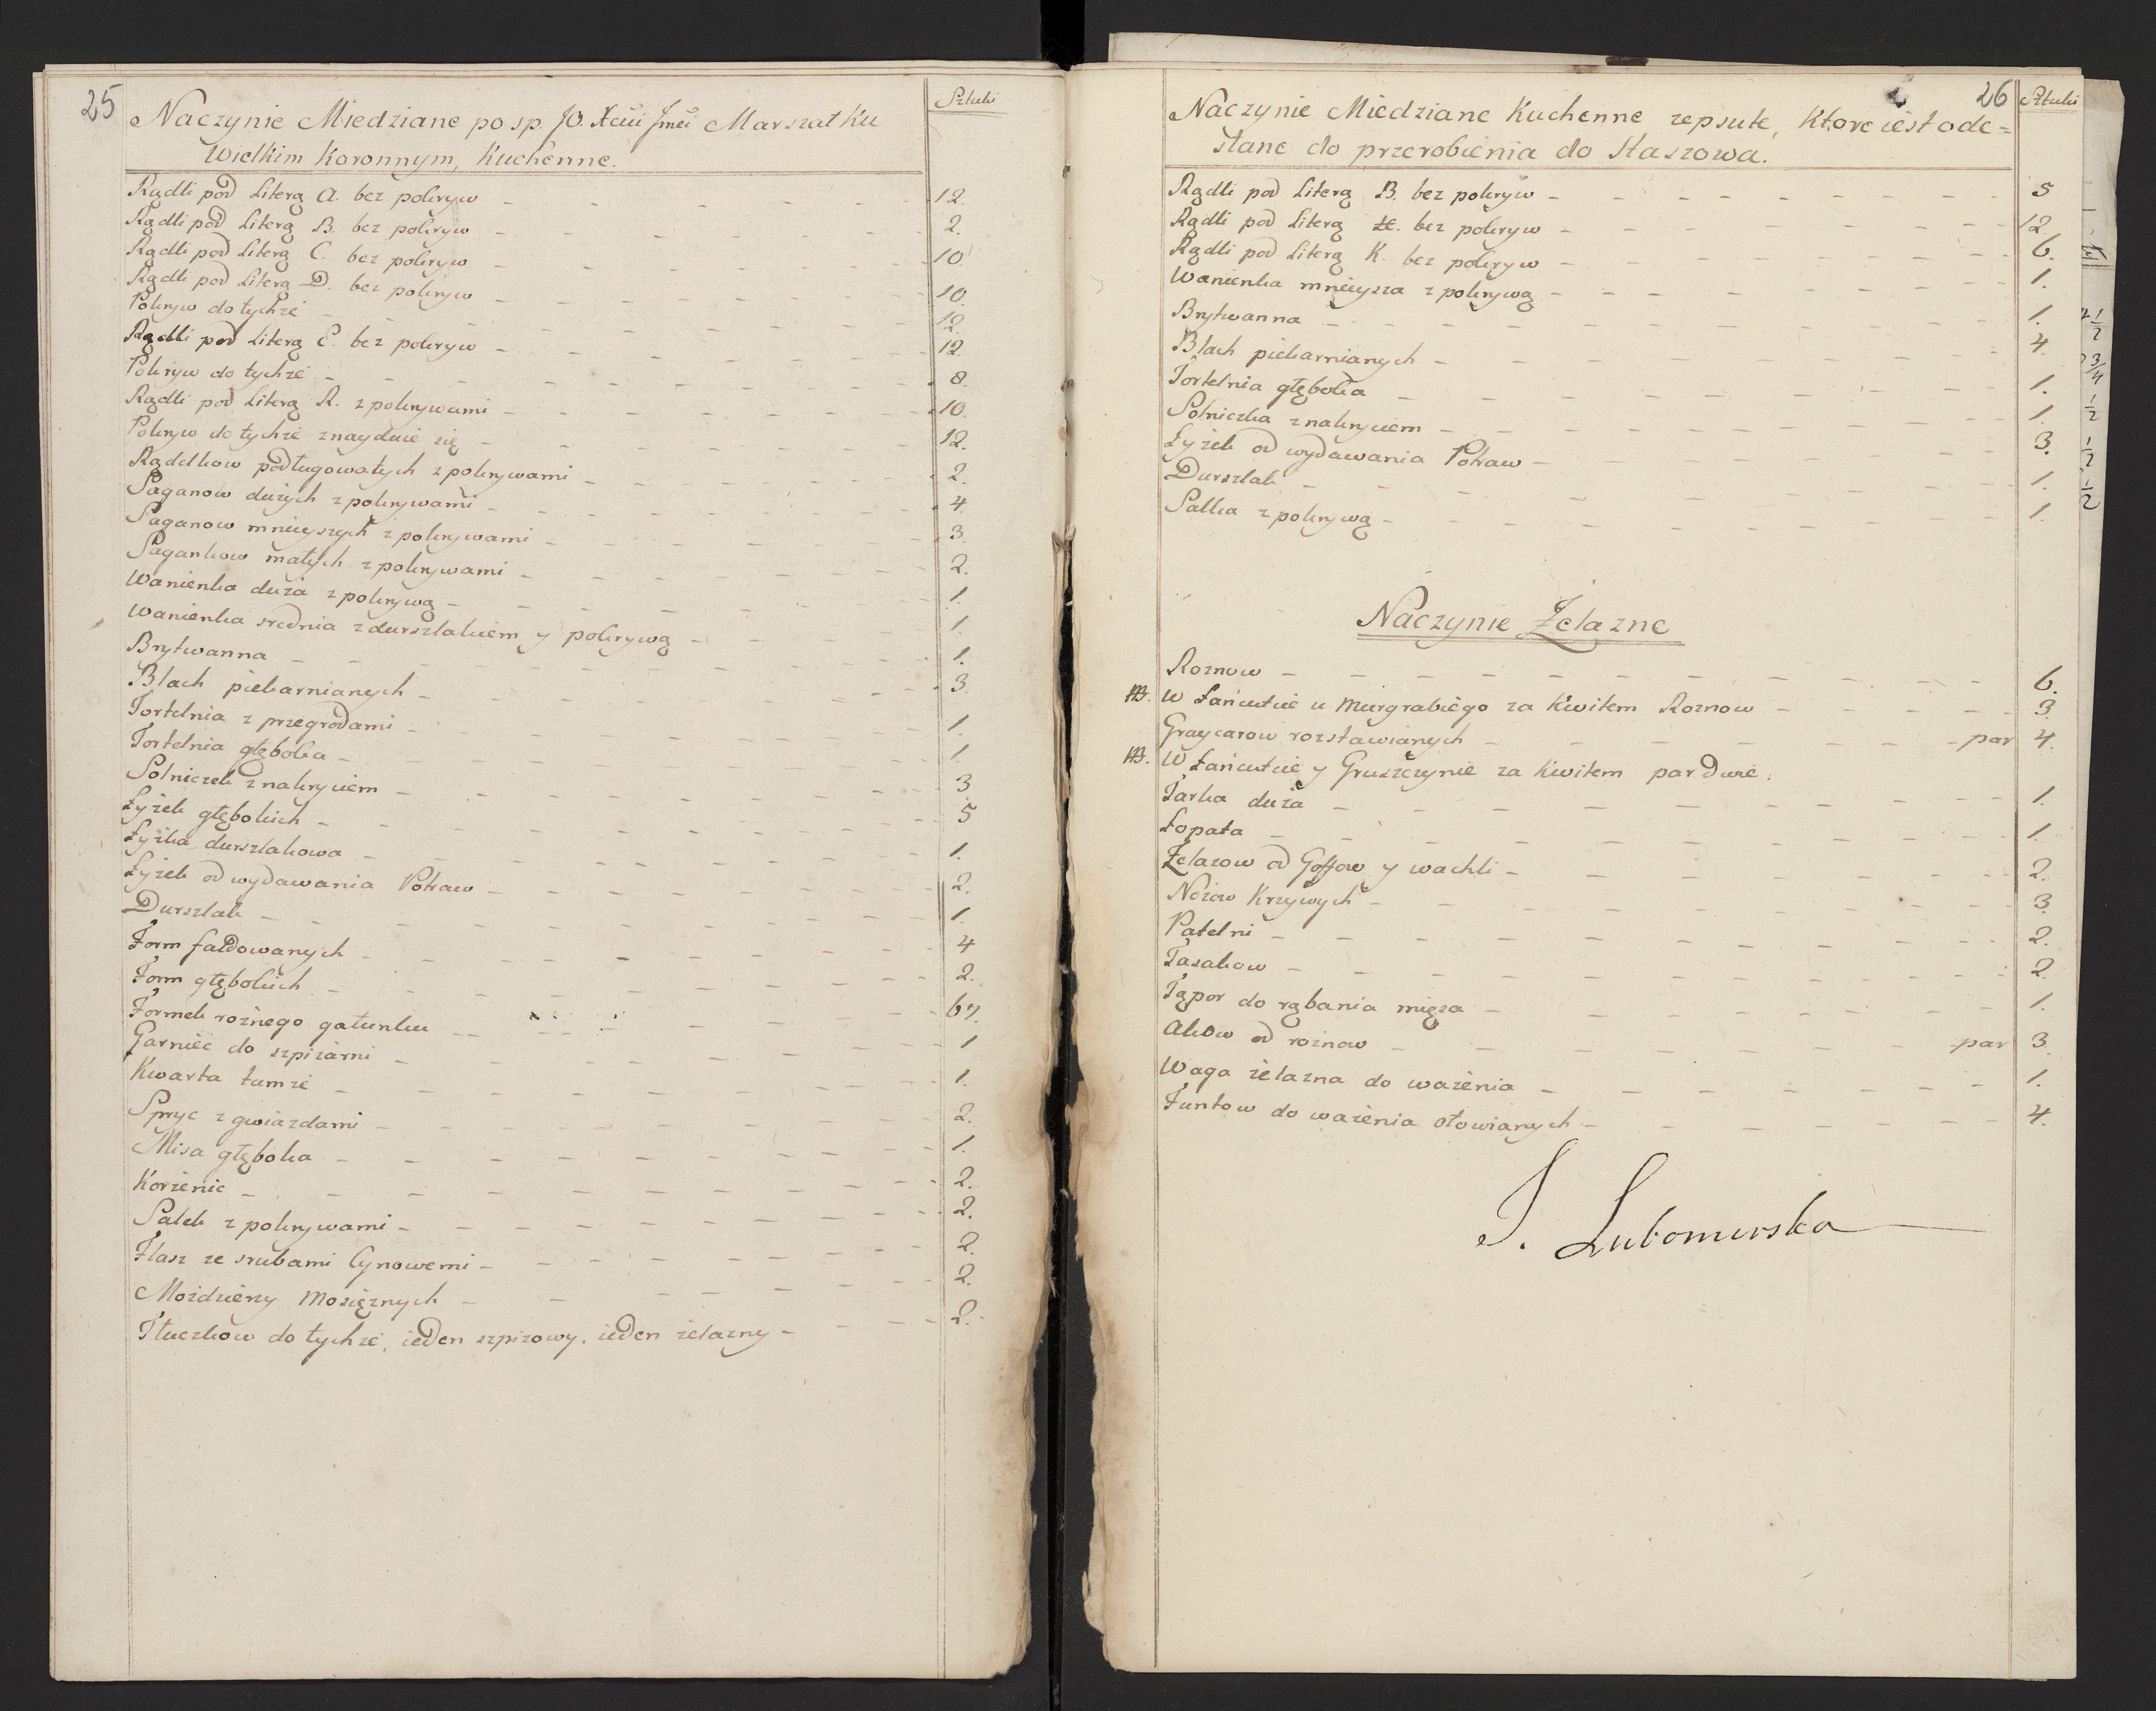 25
Sztuki
Naczynie Miedziane po sp. JO. Xciu Jmci Marszałku
Wielkim Koronnym, Kuchenne.
Rądli pod Literą A. bez pokryw - 12.
Rądli pod Literą B. bez pokryw - 2.
Rądli pod Literą C. bez pokryw - 10
Rądli pod Literą D. bez pokryw - 10.
Pokryw do tychże - 12.
Rądli pod Literą E. bez pokryw - 12.
Pokryw do tychże - 8.
Rądli pod Literą R. z pokrywami - 10.
Pokryw do tychże znayduie się - 12.
Rądelkow podługowatych z pokrywami - 2.
Saganow dużych z pokrywami - 4.
Saganow mnieyszych z pokrywami - 3.
Sagankow małych z pokrywami - 2.
Wanienka duża z pokrywą - 1.
Wanienka srednia z durszlakiem y pokrywą - 1.
Brytwanna - 1.
Blach piekarnianych - 3.
Tortelnia z przegrodami - 1.
Tortelnia głęboka - 1.
Solniczek z nakryciem - 3
Łyżek głębokich - 5
Łyżka durszlakowa - 1.
Łyżek od wydawania Potraw - 2.
Durszlak - 1.
Form fałdowanych - 4
Form głębokich - 2.
Formek rożnego gatunku - 67.
Garniec do szpiżarni - 1
Kwarta tamże - 1.
Spryc z gwiazdami - 2.
Misa głęboka - 1.
Korzenic - 2.
Salek z pokrywami - 2.
Flasz ze srubami Cynowemi - 2.
Mozdzierzy Mosięznych - 2.
Tłuczkow do tychże, ieden szpizowy, ieden żelazny - 2.
26
Sztuki
Naczynie Miedziane Kuchenne zepsute, Ktore iest ode=
słane do przerobienia do Staszowa.
Rądli pod Literą B. bez pokryw - 5
Rądli pod Literą H. bez pokryw - 12
Rądli pod Literą K. bez pokryw - 6.
Wanienka mnieysza z pokrywą - 1.
Brytwanna - 1.
Blach piekarnianych - 4.
Tortelnia głęboka - 1.
Solniczka z nakryciem - 1.
Łyżek od wydawania Potraw - 3.
Durszlak - 1.
Salka z pokrywą - 1.
Naczynie Żelazne
Roznow - 6.
NB. W Łańcucie u Murgrabiego za Kwitem Roznow - 3.
Graycarow rozstawianych - par 4.
NB. W Łańcucie y Gruszczynie za Kwitem par dwie.
Tarka duża - 1.
Łopata - 1.
Żelazow od Goffow y wachli - 2.
Nożow Krzywych - 3.
Patelni - 2.
Tasakow - 2.
Tąpor do rąbania mięsa - 1.
Akow od rożnow - par 3.
Waga żelazna do ważenia - 1.
Funtow do ważenia ołowianych - 4.
J. Lubomirska